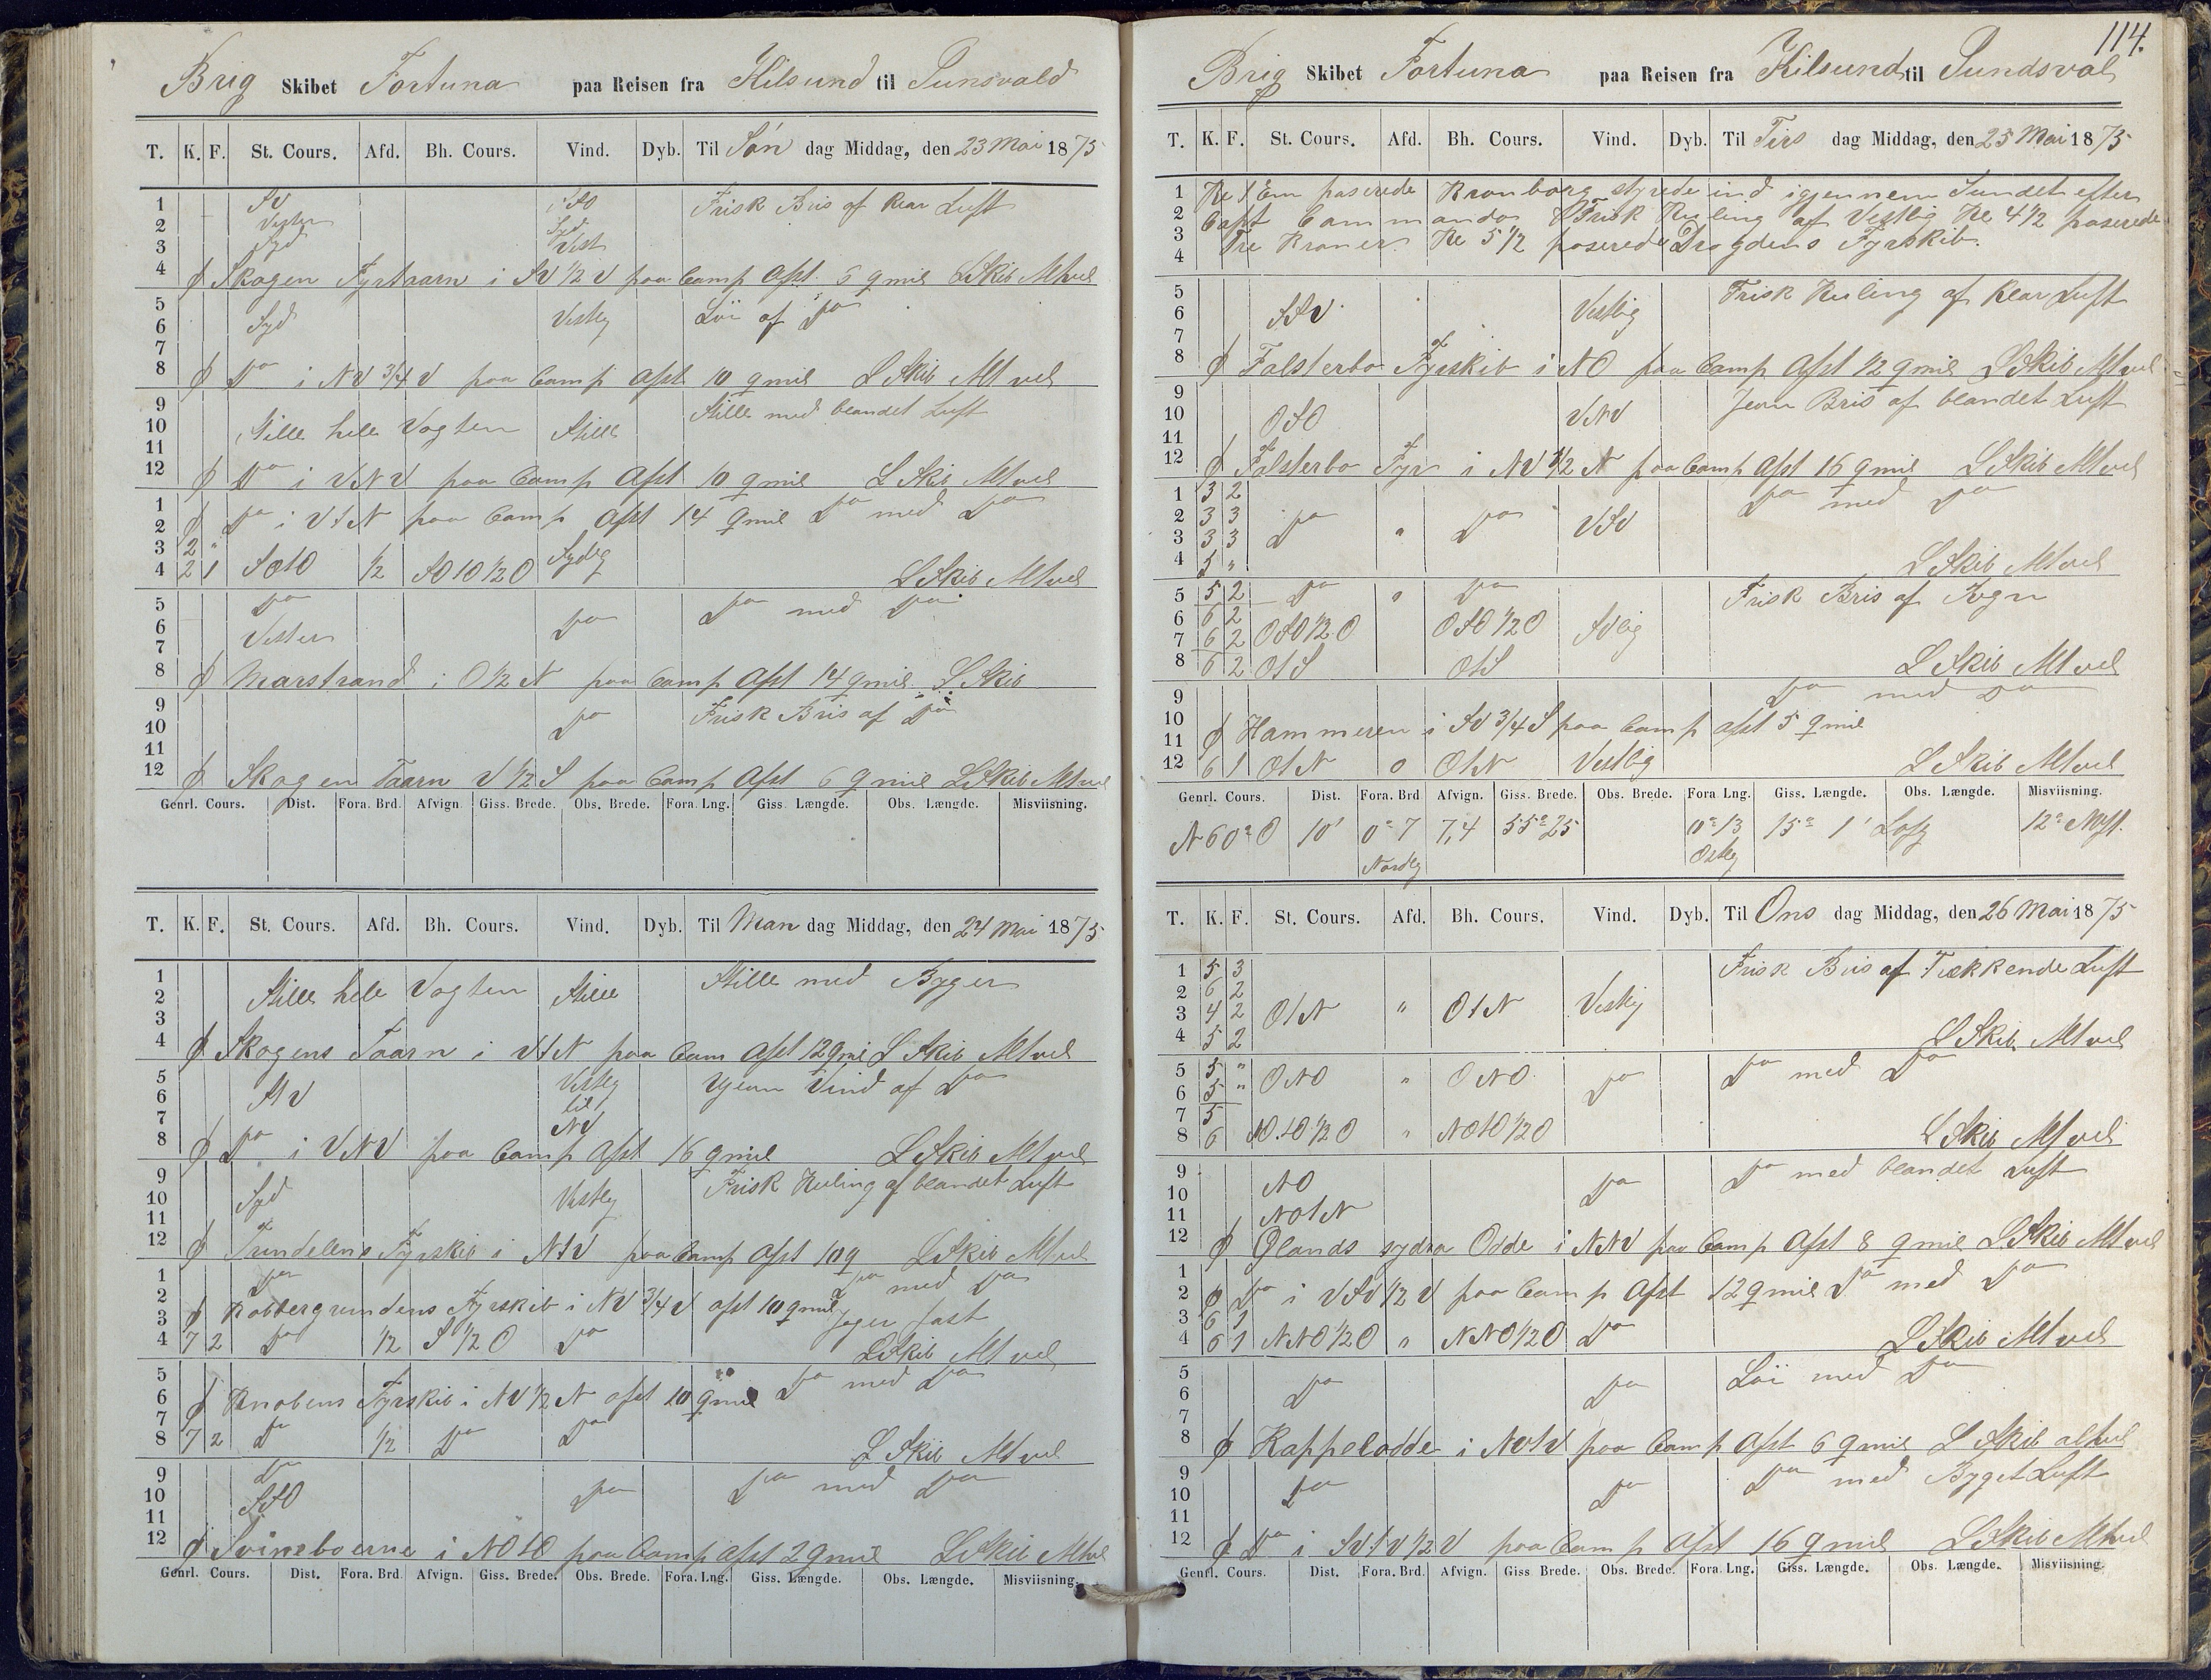 Brig Skibet Fortuna paa Reisen fra Kilsund til Sunsvald
T. K. F. St. Cours. Afd. Bh. Cours. Vind. Dyb. Til Søn dag Middag, den 23 Mai 1875
1 SV SSO Frisk Bris af klar Luft
2 Vester Syd
3 Syd Vest
4 ϕ Skagen Fyrtaarn i SV 1/2 V paa Comp Afst. 6 qmil L Skib Alt vel
5 Vestlig Löi af Do
6 Syd
7
8 ϕ Do i NV 3/4 V paa Comp afst 10 qmil L Skib Alt vel
9 Stille med blandet Luft
10 Stille hele Vagten Stille
11
12 ϕ Do i VNV paa Comp Afst 10 qmil L Skib Alt vel
1
2 ϕ Do i VtN paa Comp Afst 14 qmil Do med Do
3 2 " Sydlig
4 2 1 SOtO 1/2 SOtO 1/2 O L Skib Alt vel
5 Do Do med Do
6 Vester Do
7
8 ϕ Marstrand i O 1/2 N paa Comp Afst 14 qmil L Skib
9 Frisk Bris af Do
10 Do
11
12 ϕ Skagen Taarn V 1/2 S paa Comp Afst 6 qmil L Skib Alt vel
Genrl. Cours. Dist. Fora. Brd. Afvign. Giss. Brede. Obs. Brede. Fora. Lng. Giss. Længde. Obs. Længde. Misviisning.
T. K. F. St. Cours. Afd. Bh. Cours. Vind. Dyb. Til Man dag Middag, den 24 Mai 1875
1 Stille med Byger
2 Stille hele Vagten Stille
3
4 ϕ Skagens Taarn i VtN paa Com Afst 12 qmil L Skib Alt vel
5 Vestlig Vind af Do
6 StV til
7 NV
8 ϕ Do i VNV paa Comp Afst 16 qmil L Skib Alt vel
9 Frisk Kuling af blandet Luft
10 Syd Vestlig
11
12 ϕ Trindelens Fyrskib i NtV paa Comp Afst 10 q L Skib Alt vel
1 Do Do med Do
2
3 ϕ Kobbergrundens Fyrskib i NV 3/4 V afst 10 qmil
4 7 2 Do 1/2 S 1/2 O Do L Skib Alt vel
5 Do med Do
6 ϕ Knobens Fyrskib i NV 1/2 N afst 10 qmil
7
8 7 2 Do 1/2 Do Do L Skib Alt vel
9 Do Do med Do
10 SSO Do
11
12 ϕ Svineboerne i NOtO paa Comp afst 2 qmil L Skib Alt vel
Genrl. Cours. Dist. Fora. Brd. Afvign. Giss. Brede. Obs. Brede. Fora. Lng. Giss. Længde. Obs. Længde. Misviisning.
114.
Brig Skibet Fortuna paa Reisen fra Kilsund til Sundsval
T. K. F. St. Cours. Afd. Bh. Cours. Vind. Dyb. Til Tirs dag Middag, den 25 Mai 1875
1 Kl 1 Em paserede Kronborg styrede ind igjennem Sundet efter
2 Capt Commando Frisk Kuling af Vestlig Kl 4 1/2 paserede
3 Tre Kroner Kl 5 1/2 paserede Drogdens Fyrskib.
4
5 Frisk Kuling af klar Luft
6 SSV Vestlig
7
8 ϕ Falsterbo Fyrskib i NO paa Comp Afst 1/2 qmil L Skib Alt vel
9 Jevn Bris af blandet Luft
10 OSO VNV
11
12 ϕ Falsterbo Fyr i NV 1/2 N paa Comp Afst 16 qmil L Skib Alt vel
1 3 2 Do med Do
2 3 3 Do " Do VSV
3 3 3
4 5 " L Skib Alt vel
5 5 2 Do " Do Frisk Bris af Regn
6 6 2 OSO 1/2 O OSO 1/2 O SVlig
7 6 2
8 6 2 OtS OtS L Skib Alt vel
9 Do med Do
10 ϕ Hammeren i SV 3/4 S paa Comp afst 5 qmil
11
12 6 1 OtN 0 OtN Vestlig L Skib Alt vel
Genrl. Cours. Dist. Fora. Brd Afvign. Giss. Brede. Obs. Brede. Fora Lng. Giss. Længde. Obs. Længde. Misviisning.
N 60° O 10' 0° 7 Nordlig 7,4 55° 25 0° 13 Østlig 15° 1' 12°
T. K. F. St. Cours. Afd. Bh. Cours. Vind. Dyb. Til Ons dag Middag, den 26 Mai 1875
1 5 3 Frisk Bris af Trækkende Luft
2 6 2
3 4 2 OtN " OtN Vestlig
4 5 2 L Skib Alt vel
5 5 " ONO " ONO Do Do med Do
6 5 "
7 5
8 6 NOtO 1/2 O " NOtO 1/2 O L Skib Alt vel
9 Do med blandet Luft
10 NO Do
11 NOtN
12 ϕ Ølands sydra Odde i NNV paa Comp Afst 8 qmil L Skib Alt vel
1
2 ϕ Do i VSV 1/2 V paa Comp Afst 12 qmil Do med Do
3 6 1
4 6 1 NNO 1/2 O " NNO 1/2 O Do L Skib Alt vel
5 Löi med Do
6 Do Do
7
8 ϕ Kappelodde i NVtV paa Comp Afst 6 qmil L Skib alt vel
9 Do med Byget Luft
10 Do Do
11
12 ϕ Do i SVtV 1/2 V paa Comp Afst 16 qmil L Skib Alt vel
Genrl. Cours. Dist. Fora. Brd. Afvign. Giss Brede. Obs. Brede. Fora Lng. Giss. Længde. Obs. Længde. Misviisning.